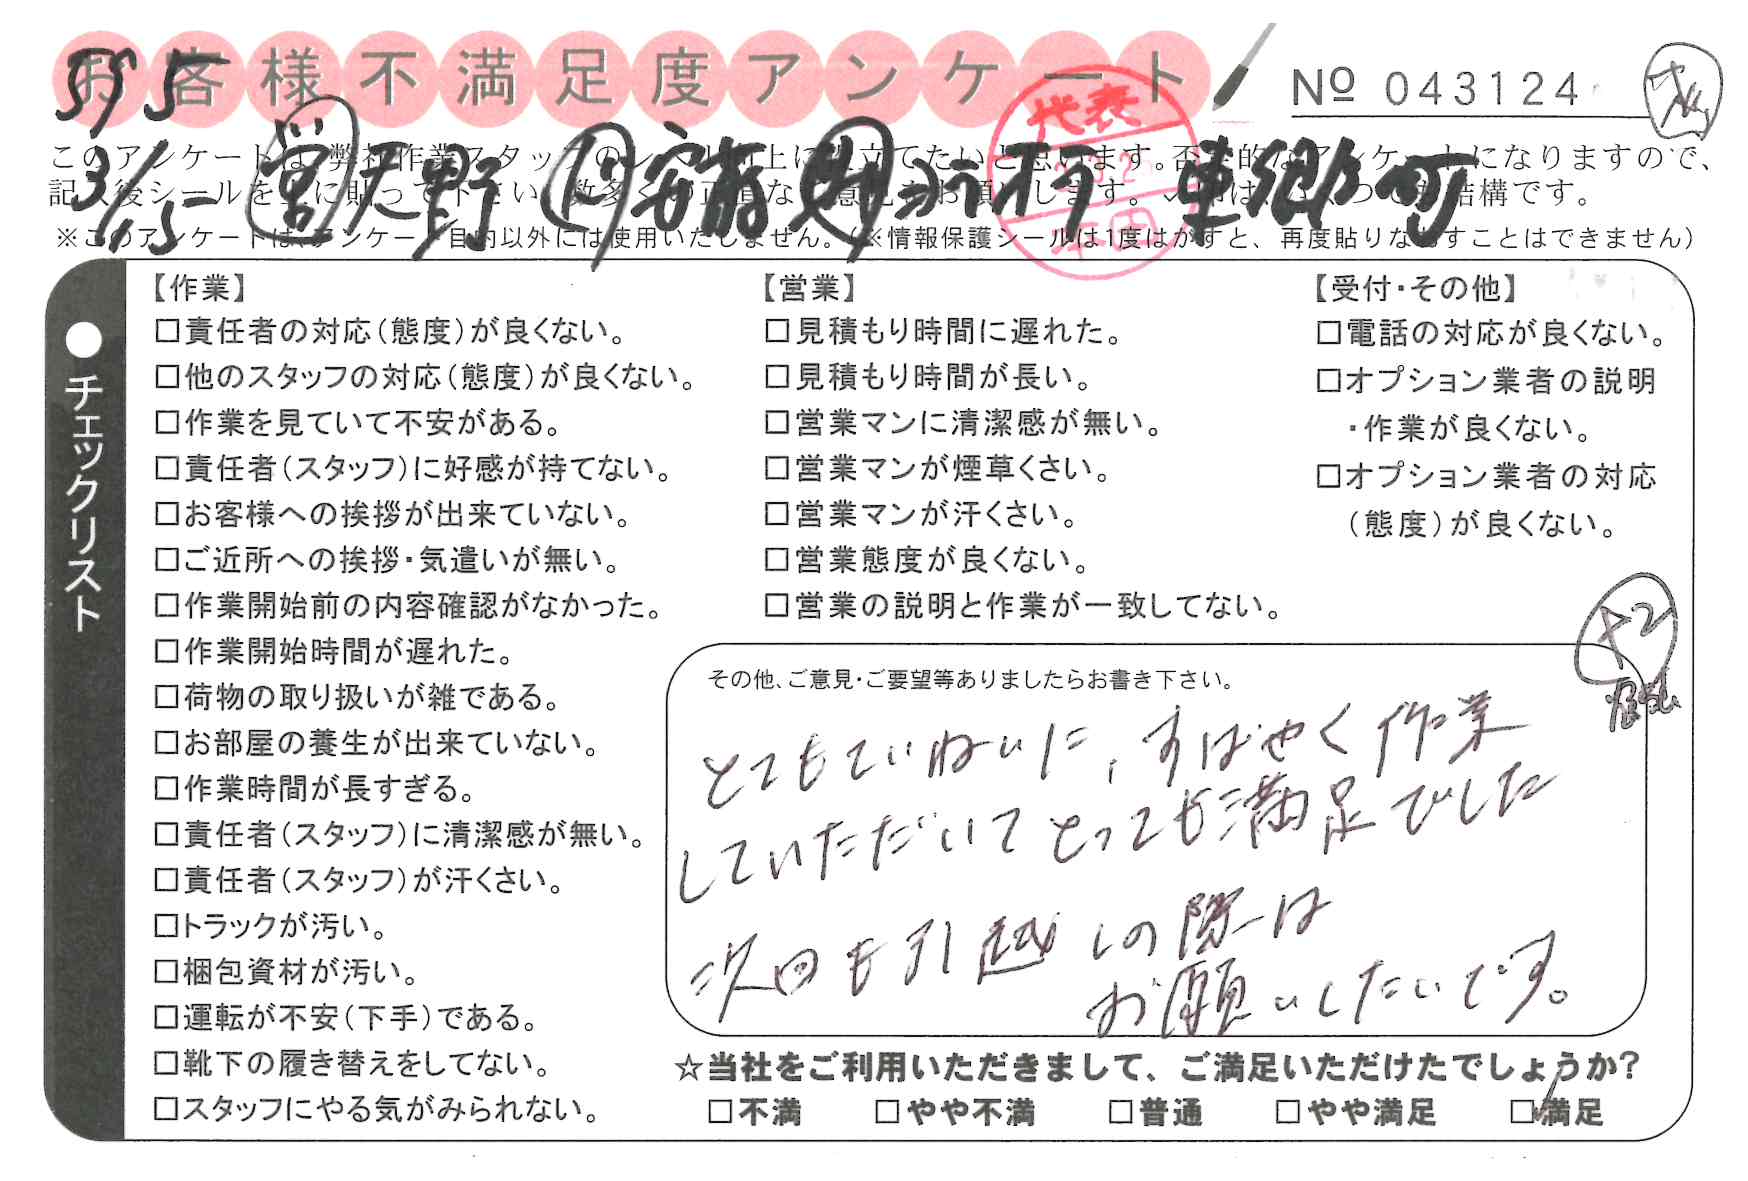 お客様不満足度アンケート
№ 043124
595
3/15 営 天野 安藤 市村 東郷 可
代表
本田
このアンケートは、弊社作業スタッフのレベル向上に役立てたいと思います。否定的なアンケートになりますので、
記入後シールを上に貼って下さい。数多くの正直なご意見をお願いします。✓印は、いくつでも結構です。
※このアンケートは、アンケート目的以外には使用いたしません。(※情報保護シールは1度はがすと、再度貼りなおすことはできません)
●チェックリスト
【作業】
□責任者の対応(態度)が良くない。
□他のスタッフの対応(態度)が良くない。
□作業を見ていて不安がある。
□責任者(スタッフ)に好感が持てない。
□お客様への挨拶が出来ていない。
□ご近所への挨拶・気遣いが無い。
□作業開始前の内容確認がなかった。
□作業開始時間が遅れた。
□荷物の取り扱いが雑である。
□お部屋の養生が出来ていない。
□作業時間が長すぎる。
□責任者(スタッフ)に清潔感が無い。
□責任者(スタッフ)が汗くさい。
□トラックが汚い。
□梱包資材が汚い。
□運転が不安(下手)である。
□靴下の履き替えをしてない。
□スタッフにやる気がみられない。
【営業】
□見積もり時間に遅れた。
□見積もり時間が長い。
□営業マンに清潔感が無い。
□営業マンが煙草くさい。
□営業マンが汗くさい。
□営業態度が良くない。
□営業の説明と作業が一致してない。
【受付・その他】
□電話の対応が良くない。
□オプション業者の説明
・作業が良くない。
□オプション業者の対応
(態度)が良くない。
+2
その他、ご意見・ご要望等ありましたらお書き下さい。
とてもていねいに、すばやく作業
していただいてとっても満足でした
次回も引越しの際は
お願いしたいです。
☆当社をご利用いただきまして、ご満足いただけたでしょうか?
□不満 □やや不満 □普通 □やや満足 ☑満足